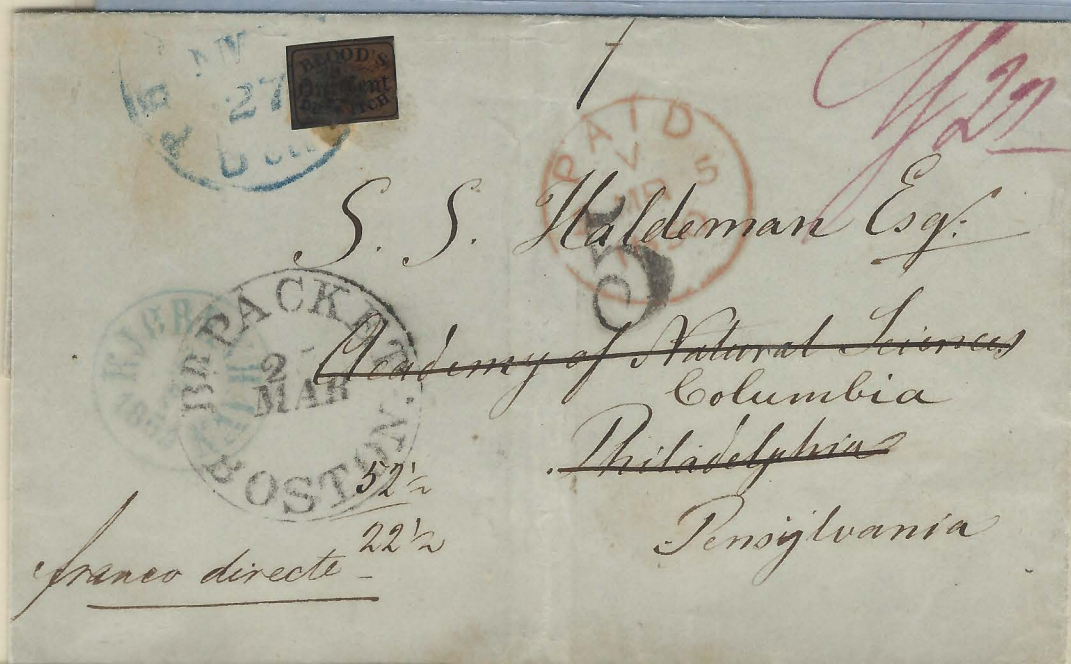 27
BLOOD'S
One Cent
DESPATCH
PAID
5
MR
S. S. Haldeman Esq.
5
BR PACKET
2
MAR
BOSTON.
Academy of Natural Sciences
Columbia
Philadelphia
Pensylvania
52½
22½
franco directe